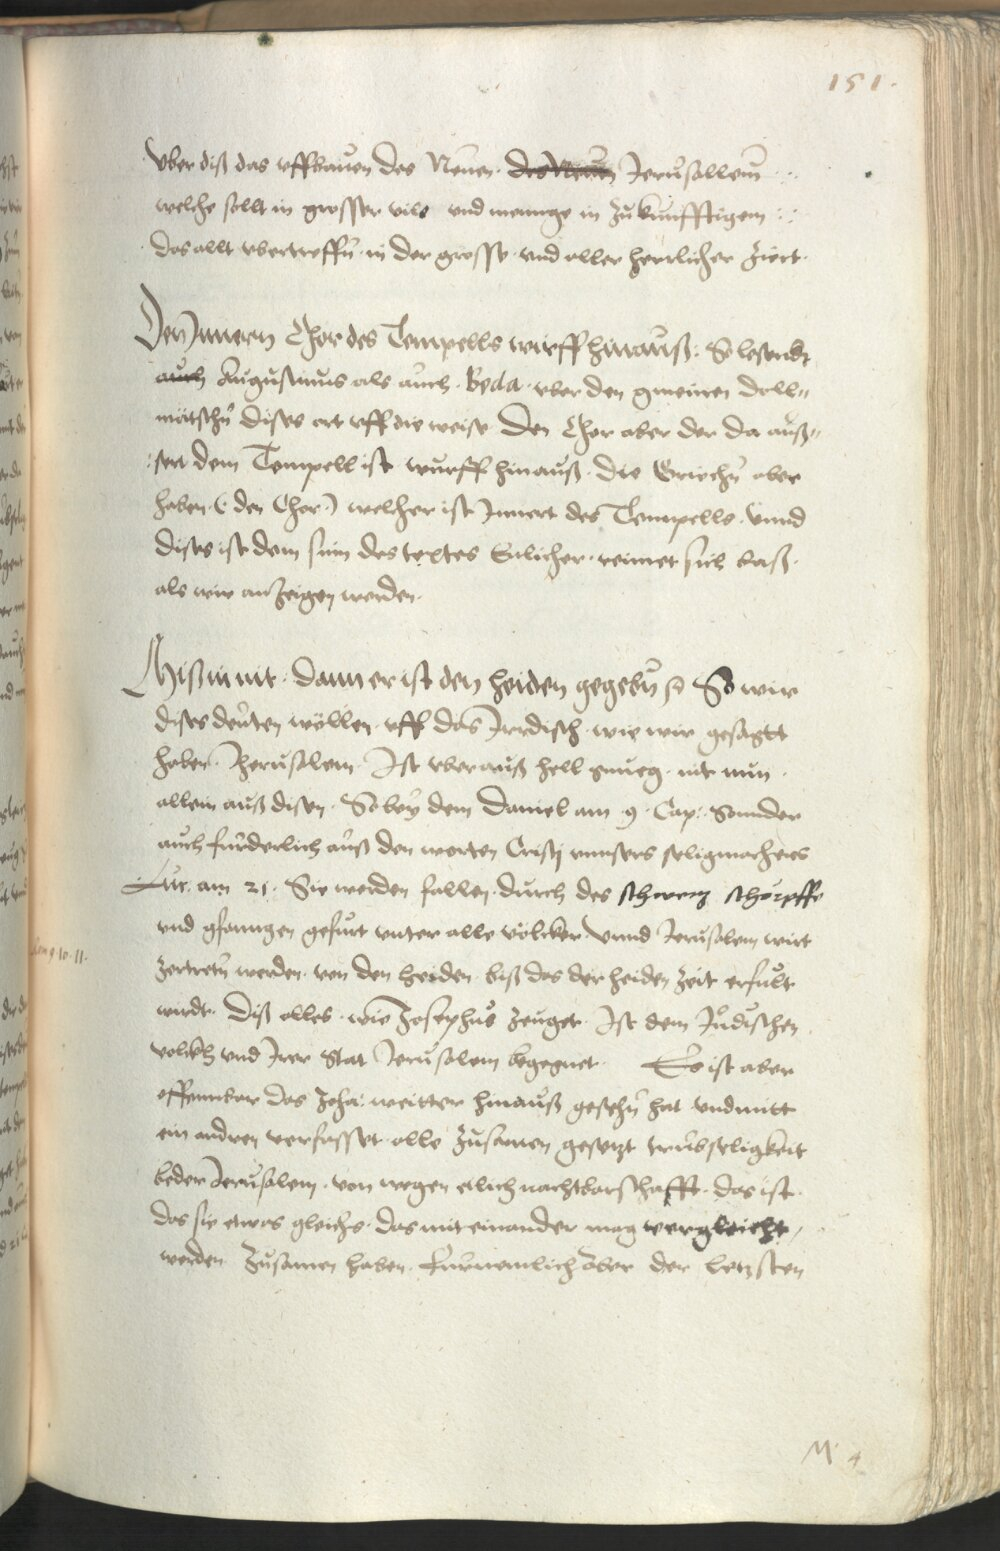 151.
Vber diß das vffbauen des Neuen. des Neuen Jerusallem
welche sollt in grosser vile vnd mennge in zukunfftigem
das allt vbertreffen in der grosse vnd aller herrlicher ziert.
Den Jnnern Chor des Tempells wirff hinauß: So lesendt
auch Augustinus als auch. Beda. vber den gmeinen doll„
mätschen dises ort vff die weise Den Chor aber der da auß„
sert dem Tempell ist wurff hinauß. Die Griechen aber
haben (den Chor) welcher ist Jnnert des Tempells. Vnnd
dises ist dem sinn des textes Enlicher. reimet sich baß.
als wir anzeigen werden.
Miss in nit. dann er ist den heiden gegeben So wir
dises deuten wöllen. vff das Jrrdisch. wie wir gesagtt
haben. Jherusalem. Ist vberauß hell gnueg. nit nun.
allein auß disen. So bey dem Daniel am 9. Cap: Sonnder
auch furderlich auß den worten Cristj vnnsers seligmachers
Luc. am 21. Sie werden fallen. durch des schwerz schörpffe
vnd gfanngen gefurt vnter alle völcker. Vnnd Jerusalem wirt
zertreten werden. von den heiden. biß das der heiden zeit erfult
wirdt. Diß alles. wie Josephus zeuget. Ist dem Judischen
volckh vnd Jrer Stat Jerusalem begegnet. Es ist aber
offennbar das Joha: weitter hinauß gesehen hat vnd mitt
ein andren verfasset. alle zusamen gesetzt trubseligkeit
beder Jerusalem. von wegen etlich nachtbarschafft. das ist.
das sie etwas gleichs. das mit einander mag vergleicht,
werden zusamen haben. Furnemlich aber der letzsten
Rom 9. 10. 11.
M 4